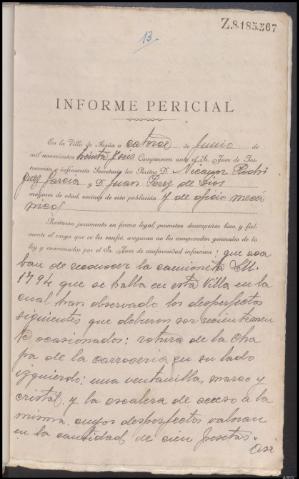 Z.8.185.567
13.
INFORME PERICIAL
En la Villa de a catorce de Junio de
mil novecientos treinta y seis Comparecen ante el Sr. Juez de Ins-
trucción y infrascrito Secretario los Peritos D. Nicanor Rodri
guez García y D. Juan Perez de Dios
mayores de edad, vecinos de esta población y de oficio mecá
nicos
Prestaron juramento en forma legal, prometen desempeñar bien y fiel-
mente el cargo que se les confía, aseguran no les comprenden generales de la
ley y examinados por el Sr. Juez de conformidad informan: que aca
ban de reconocer la camioneta M.
1794 que se halla en esta Villa en la
cual han observado los desperfectos
siguientes que debieron ser
ocasionados: rotura de la cha
pa de la carrocería en su lado
izquierdo: una ventanilla, marco y
cristal, y la escalera de acceso á la
misma, cuyos desperfectos valoran
en la cantidad de cien pesetas.
Asi